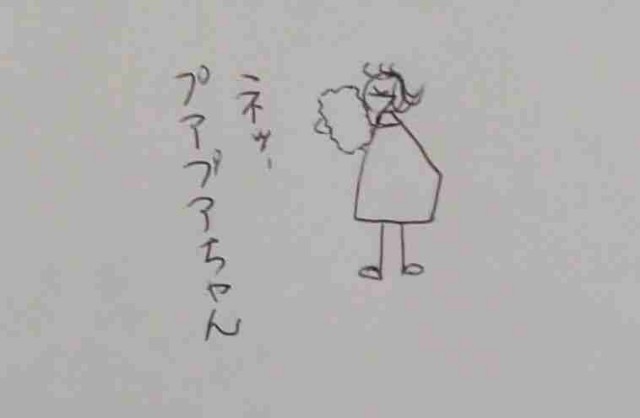 ネッ、
プアプアちゃん